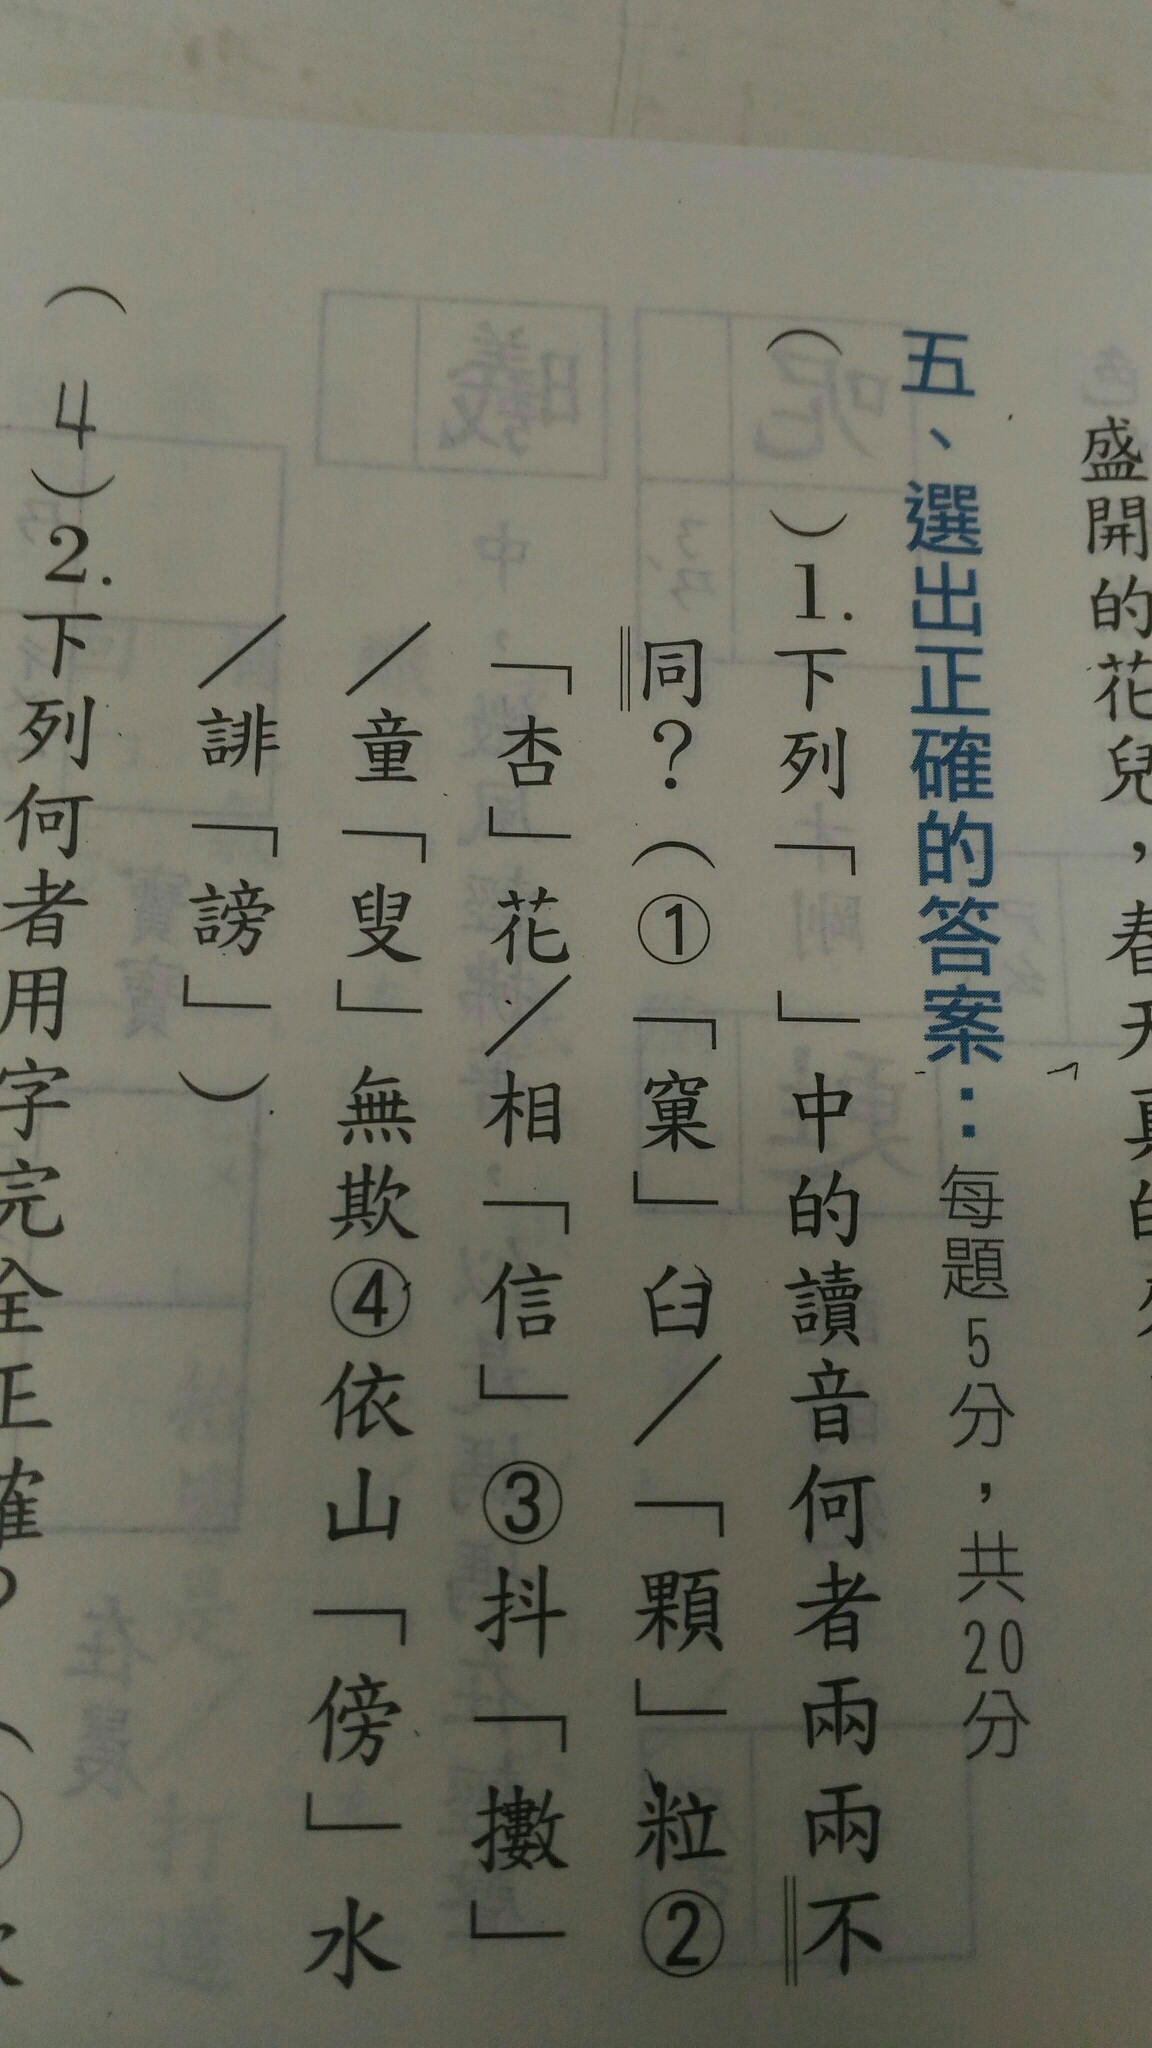 盛開的花兒，春天真的
五、選出正確的答案：每題5分，共20分
（　）1.下列「　」中的讀音何者兩兩不
同？（①「窠」臼／「顆」粒②
「杏」花／相「信」③抖「擻」
／童「叟」無欺④依山「傍」水
／誹「謗」）
（4）2.下列何者用字完全正確？（